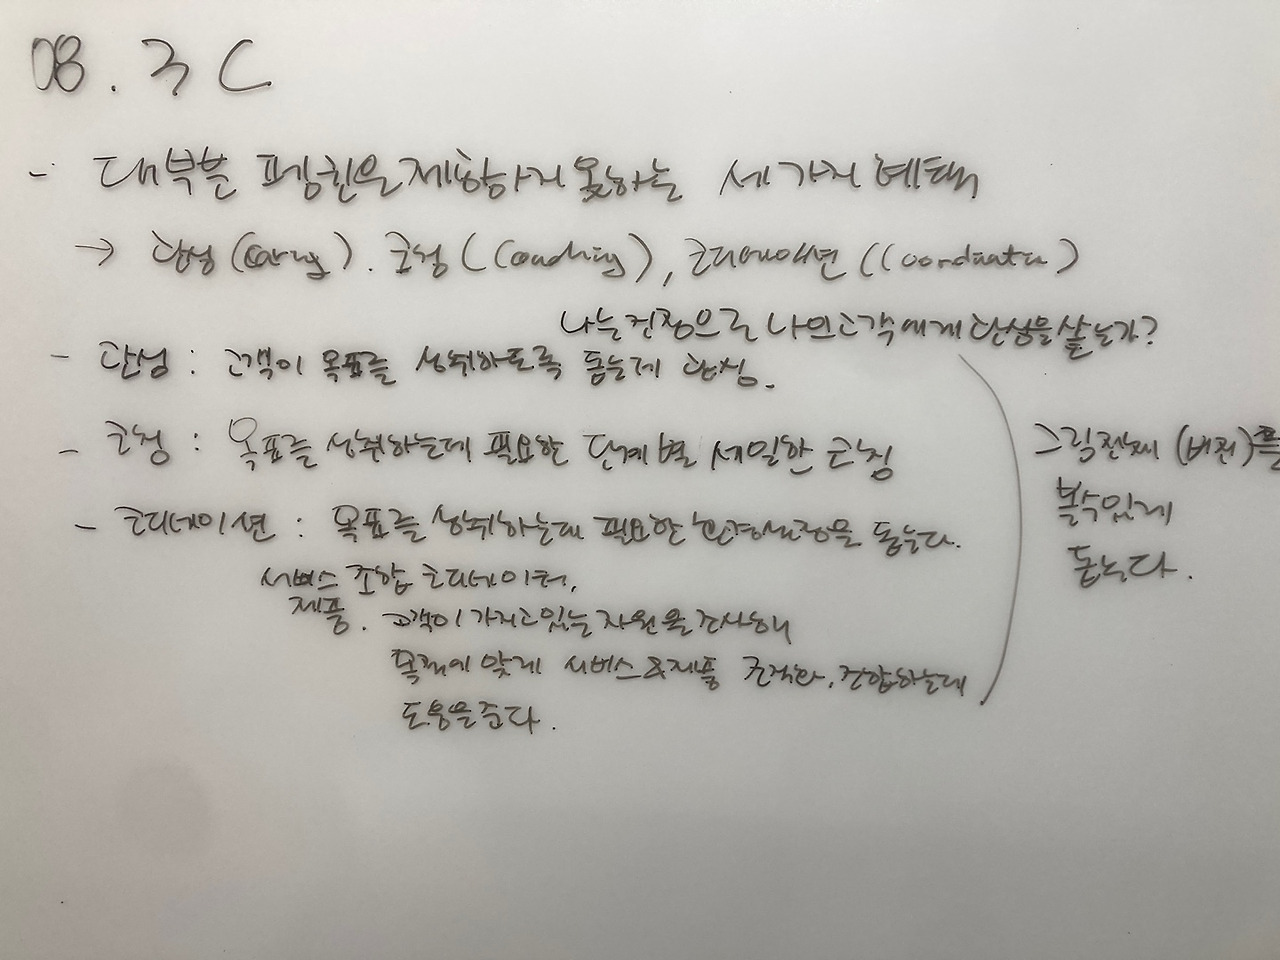 08. 3C
- 대부분 평범한은 제공하지 못하는 세가지 혜택
→ 관심 (Caring). 코칭 (Coaching), 코디네이션 (Coordination)
나는 진정으로 나의 고객에게 관심을 쏟는가?
- 관심 : 고객이 목표를 성취하도록 돕는데 관심.
- 코칭 : 목표를 성취하는데 필요한 단계별 세밀한 코칭
- 코디네이션 : 목표를 성취하는데 필요한 환경설정을 돕는다.
서비스 조합 코디네이터,
제품. 고객이 가지고 있는 자원을 조사해
목적에 맞게 서비스&제품 조직화, 조합하는데
도움을 준다.
그림전체 (비전)를
볼수있게
돕는다.